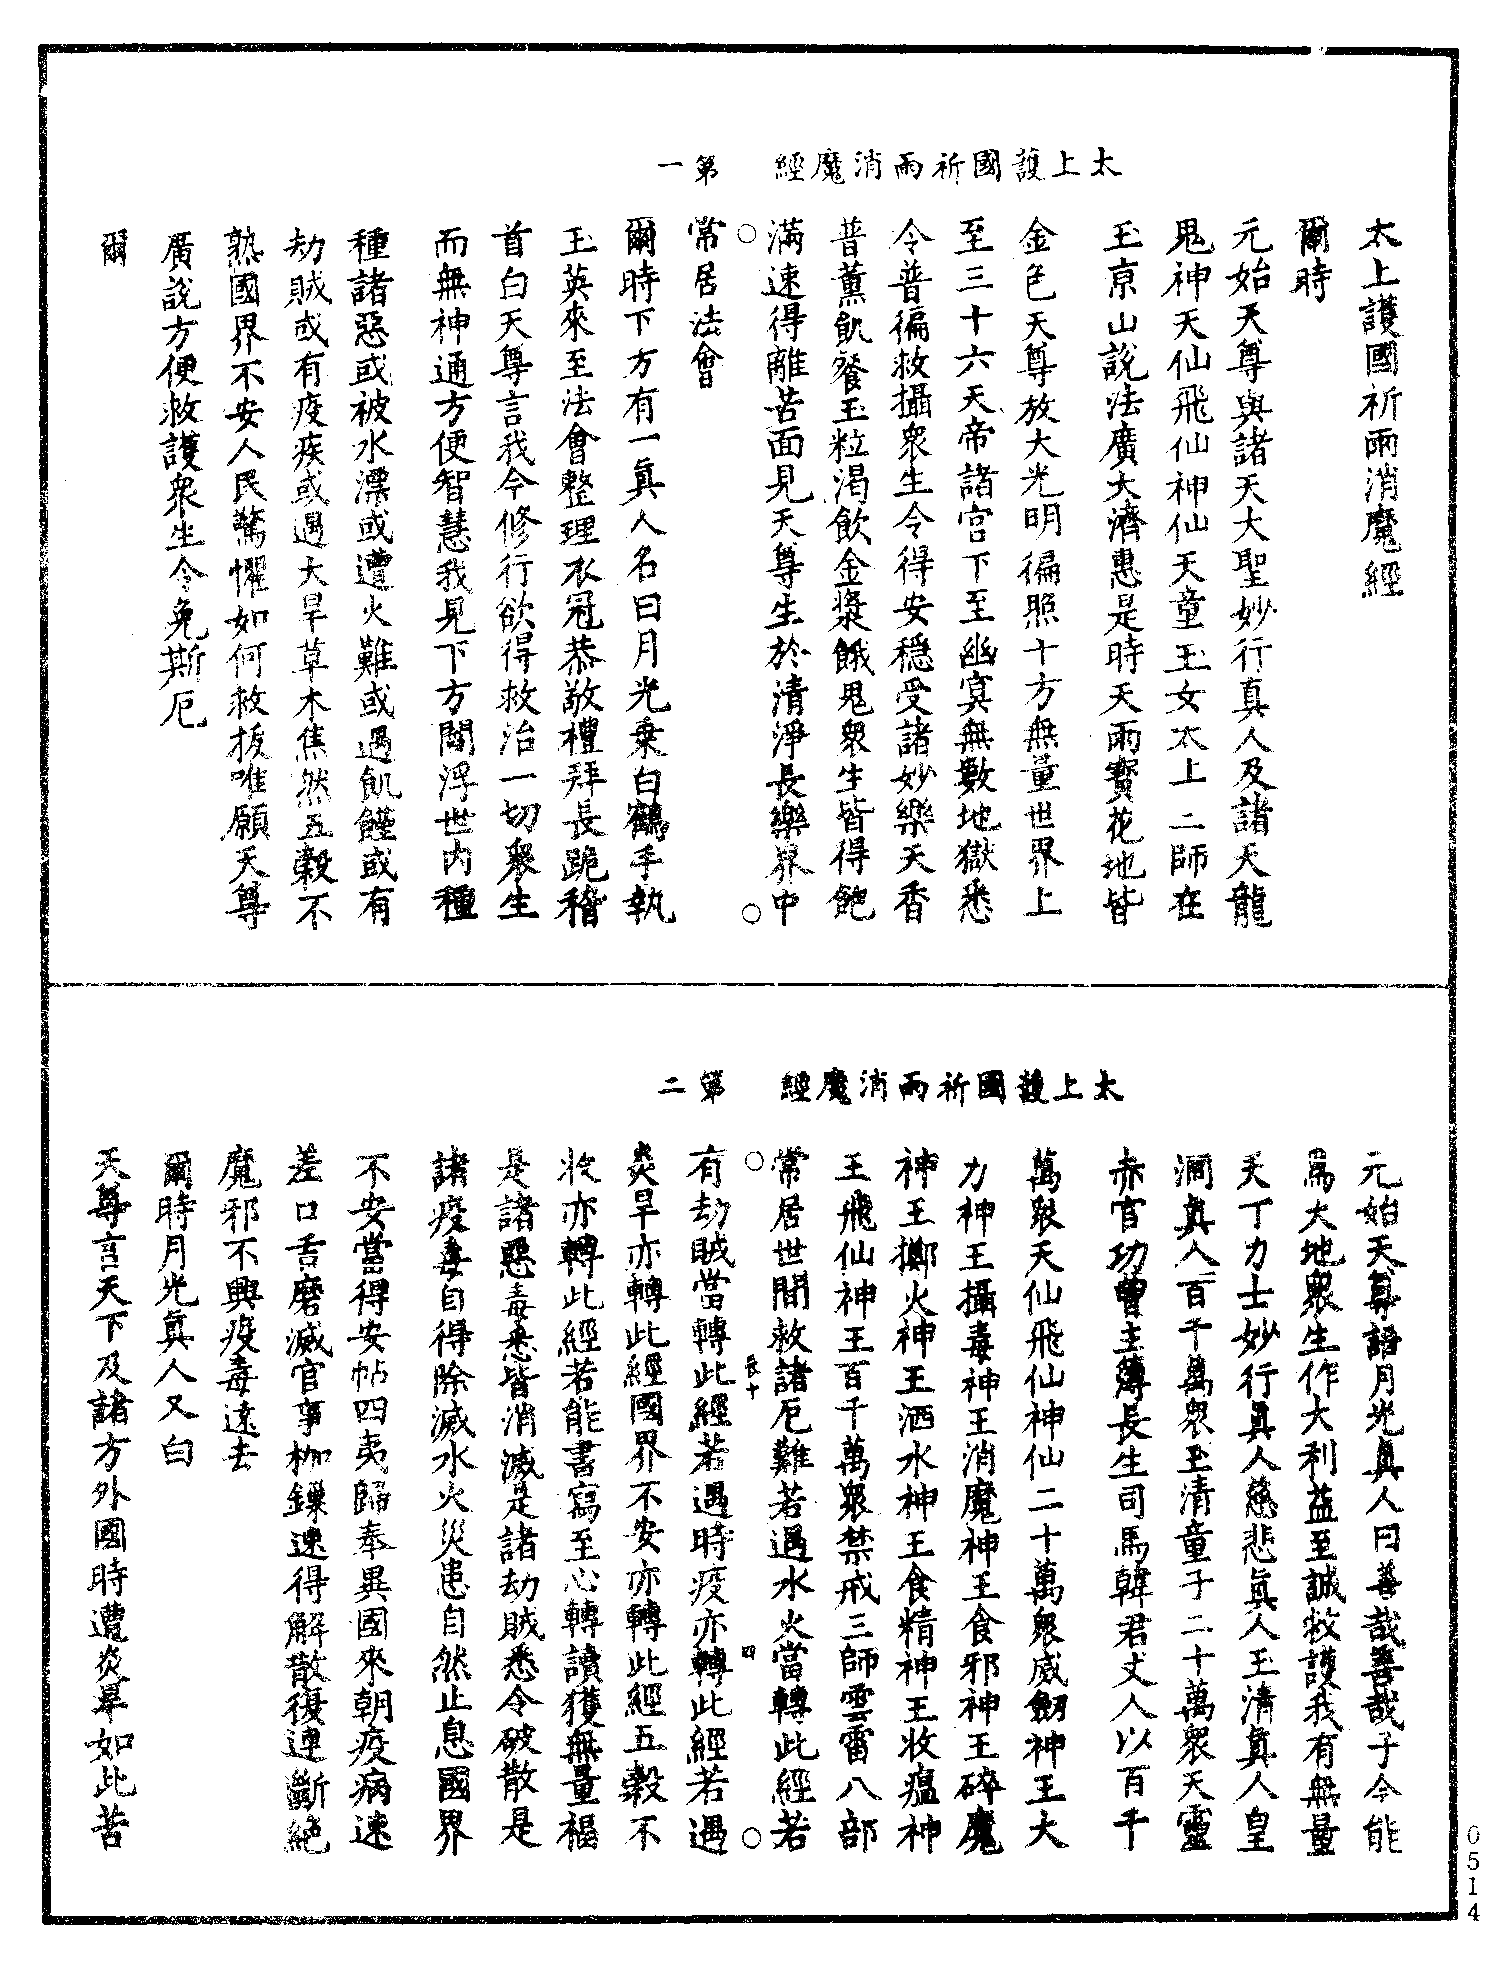 太上護國祈雨消魔經　第一
太上護國祈雨消魔經
爾時
元始天尊與諸天大聖妙行真人及諸天龍
鬼神天仙飛仙神仙天童玉女太上二師在
玉京山說法廣大濟惠是時天雨寶花地皆
金色天尊放大光明徧照十方無量世界上
至三十六天帝諸宮下至幽冥無數地獄悉
令普徧救攝衆生令得安穩受諸妙樂天香
普薰飢飡玉粒渴飲金漿餓鬼衆生皆得飽
滿速得離苦面見天尊生於清淨長樂界中
常居法會
爾時下方有一真人名曰月光乗白鶴手執
玉英來至法會整理衣冠恭敬禮拜長跪稽
首白天尊言我今修行欲得救治一切衆生
而無神通方便智慧我見下方閻浮世内種
種諸惡或被水漂或遭火難或遇飢饉或有
劫賊或有疫疾或遇大旱草木焦然五穀不
熟國界不安人民驚懼如何救拔唯願天尊
廣說方便救護衆生令免斯厄
爾
太上護國祈雨消魔經　第二
元始天尊語月光真人曰善哉善哉子今能
爲大地衆生作大利益至誠救護我有無量
天丁力士妙行真人慈悲真人玉清真人皇
洞真人百千萬衆玉清童子二十萬衆天靈
赤官功曹主簿長生司馬韓君丈人以百千
萬衆天仙飛仙神仙二十萬衆威劒神王大
力神王攝毒神王消魔神王食邪神王碎魔
神王擲火神王洒水神王食精神王收瘟神
王飛仙神王百千萬衆禁戒三師雲雷八部
常居世間救諸厄難若遇水火當轉此經若
長十　四
有劫賊當轉此經若遇時疫亦轉此經若遇
炎旱亦轉此經國界不安亦轉此經五穀不
收亦轉此經若能書寫至心轉讀獲無量福
是諸惡毒悉皆消滅是諸劫賊悉令破散是
諸疫毒自得除滅水火災患自然止息國界
不安當得安帖四夷歸奉異國來朝疫病速
差口舌磨滅官事枷鏁速得解散復連斷絕
魔邪不興疫毒遠去
爾時月光真人又白
天尊言天下及諸方外國時遭炎旱如此苦
0514